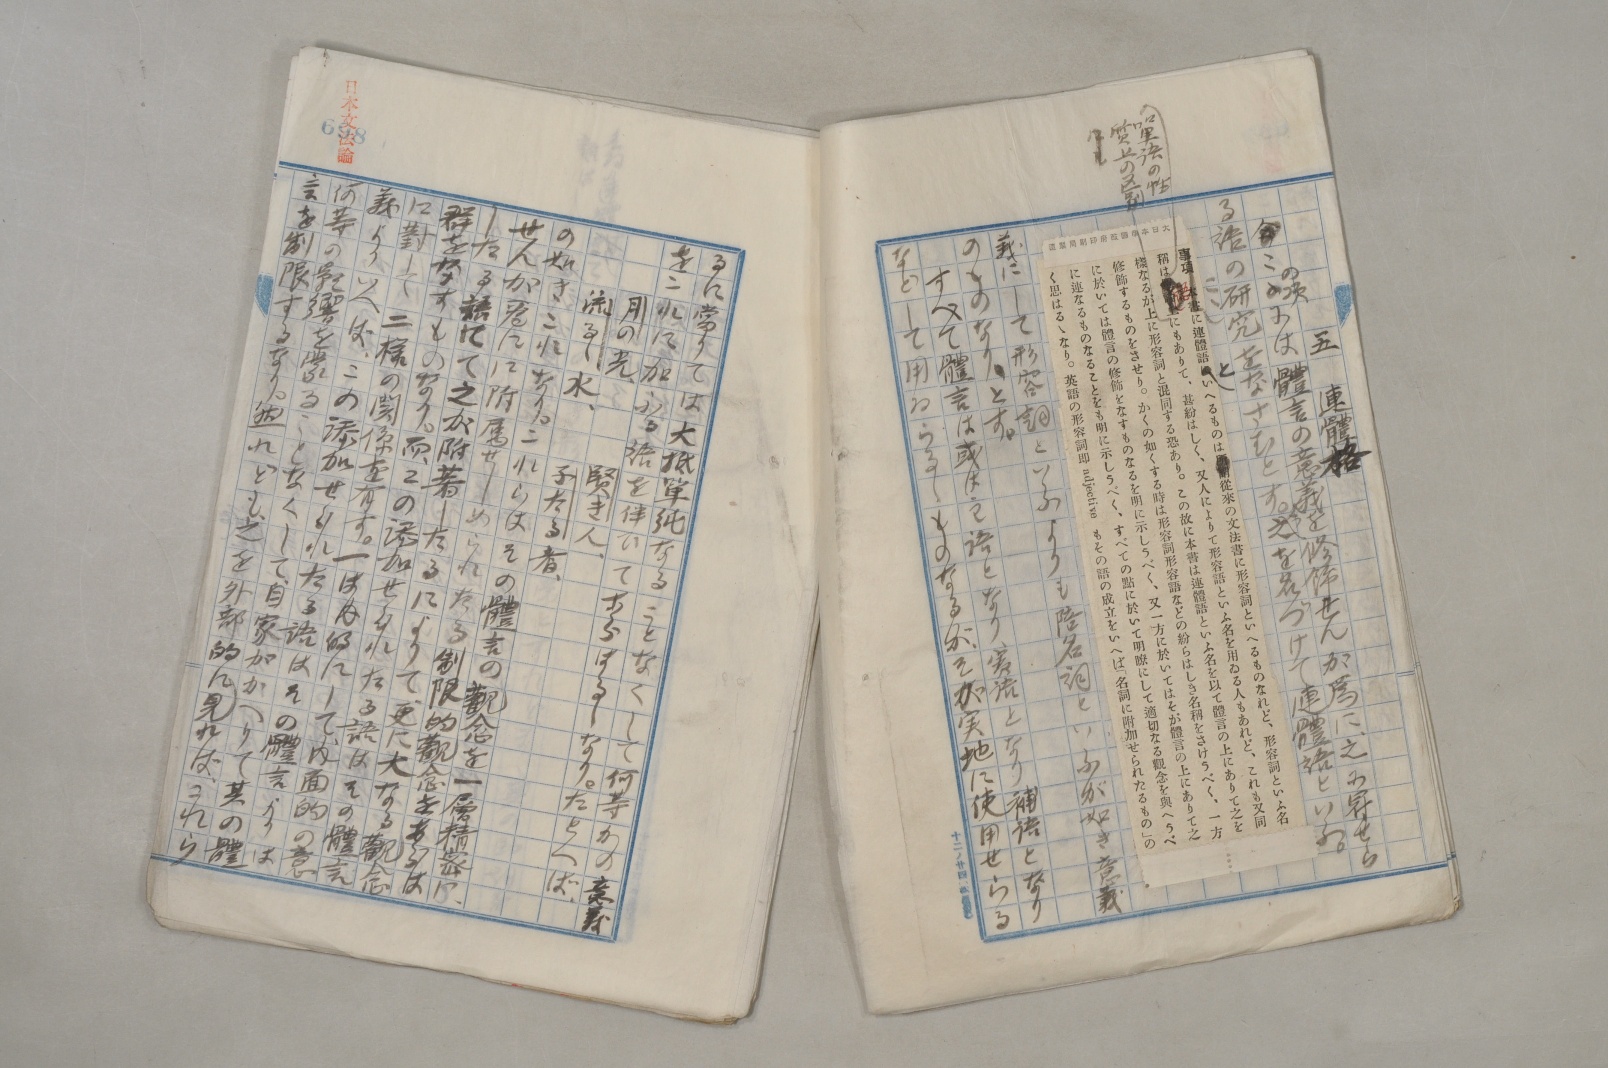 五 連體格
この項には體言の意義を修飾せんが爲に之に冠せら
るゝ語の研究をなさむとす。之を名づけて連體語といふ。
本書に連體語といへるものは從來の文法書に形容詞といへるものなれど、形容詞といふ名
稱は にもありて、甚紛はしく、又人によりて形容語といふ名を用ゐる人もあれど、これも又同
樣なるが上に形容詞と混同する恐あり。この故に本書は連體語といふ名を以て體言の上にありて之を
修飾するものをさせり。かくの如くする時は形容詞形容語などの紛らはしき名稱をさけうべく、一方
に於いては體言の修飾をなすものなるを明に示しうべく、又一方に於いてはそが體言の上にありて之
に連なるものなることをも明に示しうべく、すべての點に於いて明瞭にして適切なる觀念を與へうべ
く思はるゝなり。英語の形容詞即 adjective もその語の成立をいへば「名詞に附加せられたるもの」の
義にして形容詞といふよりも陪名詞といふが如き意義
のものなりとす。
すべて體言は或は主語となり賓語となり補語となり
などして用ゐらるゝものなるがそが實地に使用せらる
日本文法論
638
るに當りては大抵單純なることなくして何等かの意義
をこれに加ふる語を伴ひてあらはるゝなり。たとへば、
月の光、 賢き人、
流るゝ水、 子たる者、
の如きこれなり。これらはその體言の觀念を一層精密に
せんが爲に附屬せしめられたる制限的觀念をあらは
したる語にて之が附着したるによりて更に大なる觀念
群をなすものなり。而、この添加せられたる語はその體言
に對して二樣の關係を有す。一は内的にして、内面的の意
義よりいへば、この添加せられたる語はその體言よりは
何等の影響を蒙ることなくして、自家がかへりて其の體
言を制限するなり。然れども、之を外部的に見れば、これら